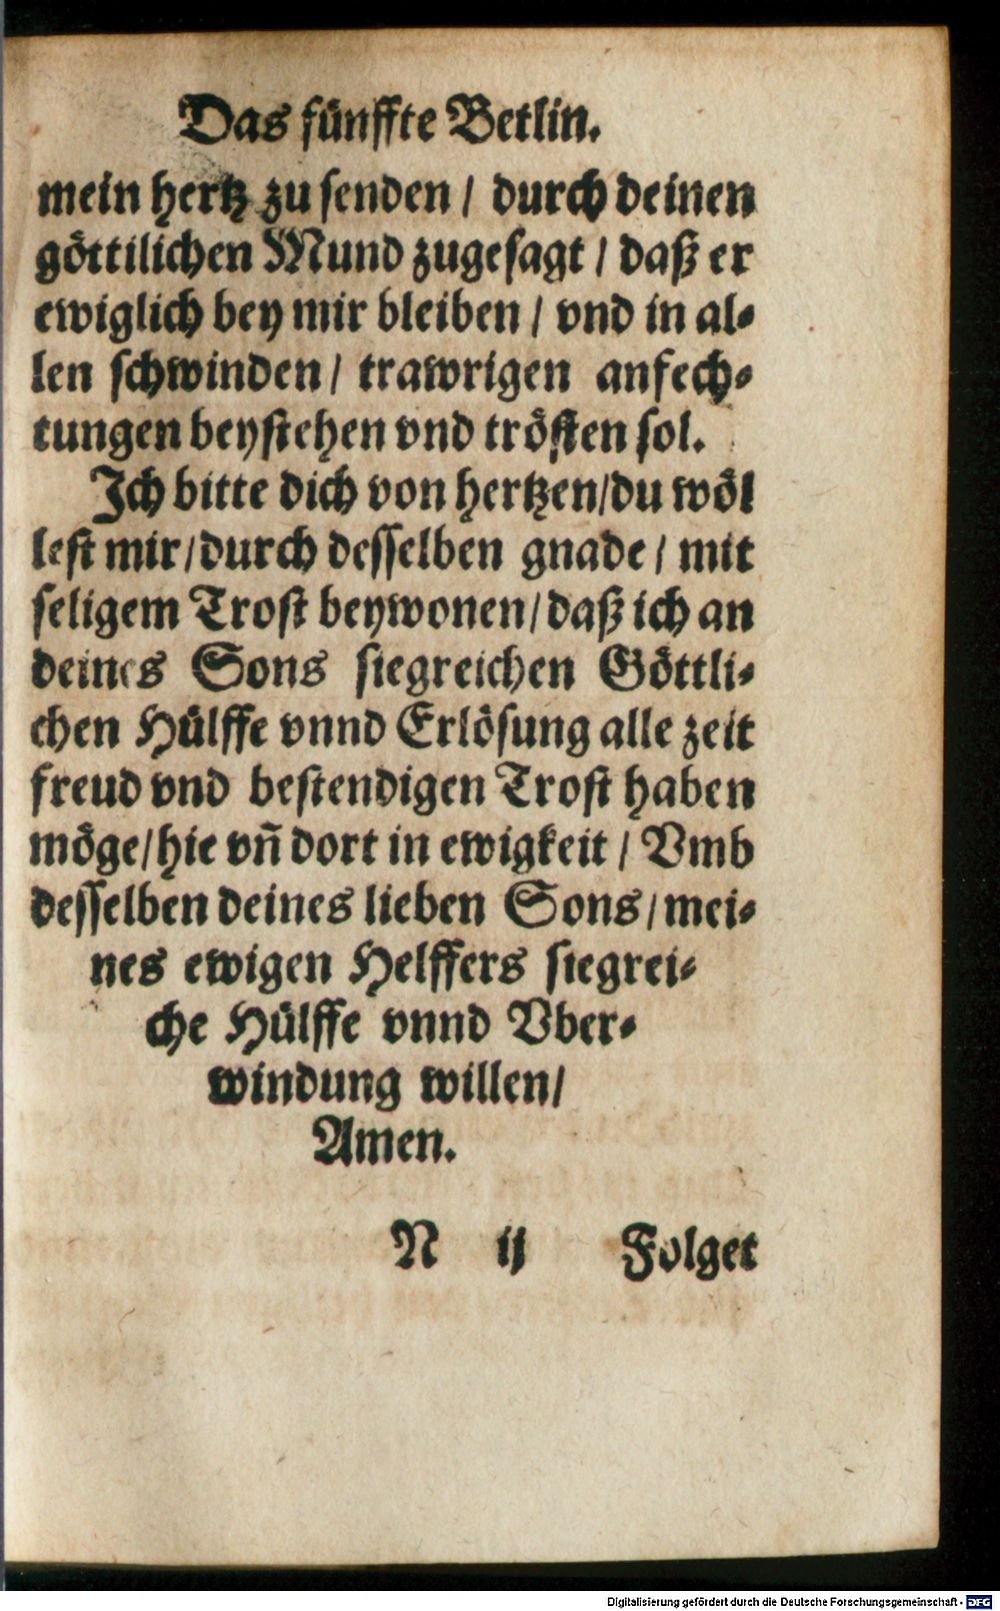 Das fünffte Betlin.
mein hertz zu senden / durch deinen
göttilichen Mund zugesagt / daß er
ewiglich bey mir bleiben / vnd in al-
len schwinden / trawrigen anfech-
tungen beystehen vnd trösten sol.
Ich bitte dich von hertzen/du wöl
lest mir/durch desselben gnade / mit
seligem Trost beywonen/daß ich an
deines Sons siegreichen Göttli-
chen Hülffe vnnd Erlösung alle zeit
freud vnd bestendigen Trost haben
möge/hie vñ dort in ewigkeit / Vmb
desselben deines lieben Sons/mei-
nes ewigen Helffers siegrei-
che Hülffe vnnd Vber-
windung willen/
Amen.
N ij Folget
Digitalisierung gefördert durch die Deutsche Forschungsgemeinschaft - DFG